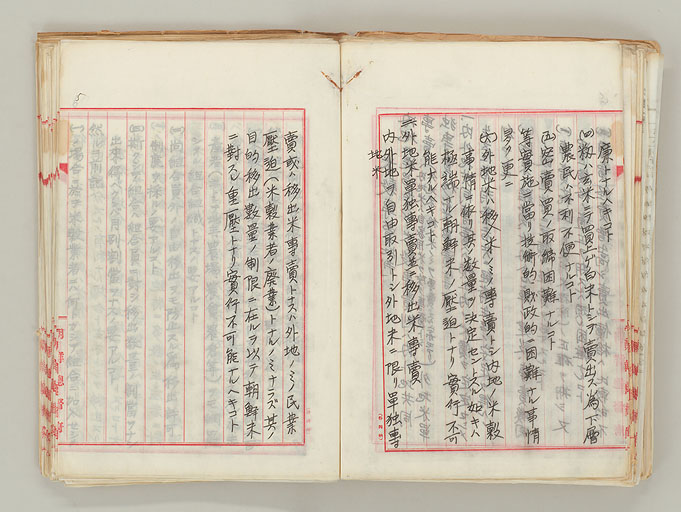 廉トナルヘキコト
(四)籾ハ玄米ニテ買上ゲ白米トシテ賣出ス為下層
農民ハ不利不便アルコト
(五)密賣買ノ取締困難ナルコト
等實施ニ當リ技術的、財政的ニ困難ナル事情
尠ク更ニ
(六)外地米ハ移入米ノミノ專賣トシ内地ノ米穀
事情ニ依リ其ノ數量ヲ決定セントスル如キハ
極端ナル朝鮮米ノ壓迫トナリ實行不可
能ナルヘキコト
三、外地米單独專賣並ニ移出米專賣
内外地ヲ自由取引トシ外地米ニ限リ單独專
地米
賣或ハ移出米專賣トナスハ外地ノミノ民業
壓迫(米穀業者ノ廃業)トナルノミナラズ其ノ
目的移出數量ノ制限ニ在ルヲ以テ朝鮮米
ニ對スル重壓トナリ實行不可能ナルヘキコト